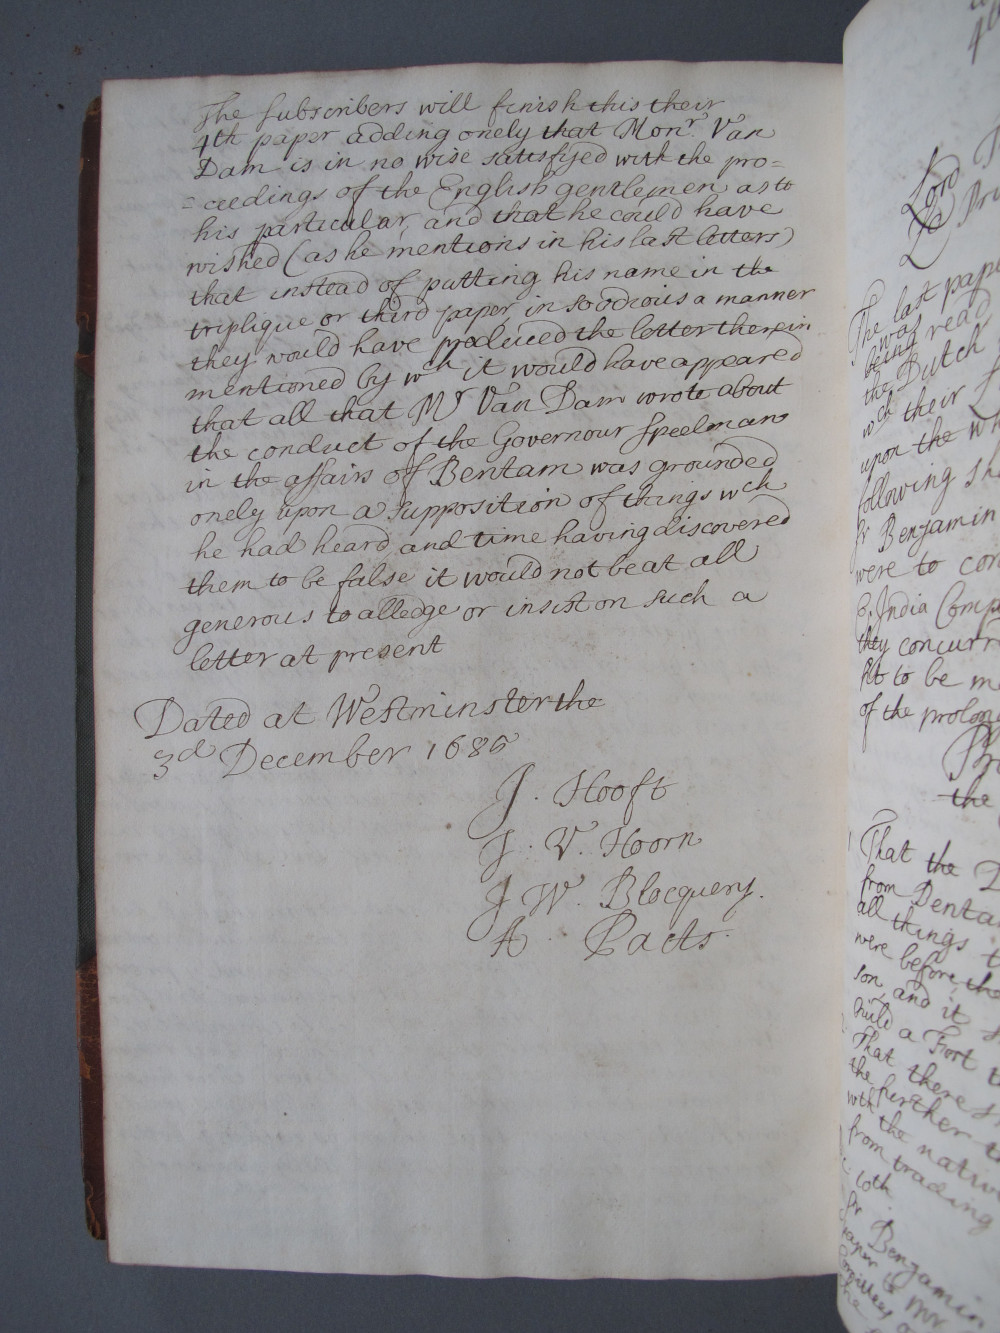 The Subscribers will finish this their
4th paper adding onely that Monr. Van
Dam is in no wise satisfyed with the pro=
=ceedings of the English gentlemen as to
his particular, and that he could have
wished (as he mentions in his last letters)
that instead of putting his name in the
triplique or third paper in so odious a manner
they would have produced the letter therein
mentioned by wch it would have appeared
that all that Mr Van Dam wrote about
the conduct of the Governour Speelman
in the affairs of Bentam was grounded
onely upon a supposition of things wch
he had heard, and time having discovered
them to be false it would not be at all
generous to alledge or insist on such a
letter at present
Dated at Westminster the
3d December 1685
J. Hooft
J. V. Hoorn
J W. Blocquery.
A. Paets.
Lord
Pri
The last pape
was
being read
the Dutch
wch their
upon the wh
following sh
Sr Benjamin
were to con
E. India Comp
they concurr
fit to be m
of the prolon
Pro
the
That the D
from Benta
all things t
were before, the
son, and it s
build a Fort t
That there s
the further t
wth the nativ
from trading
both
Sr Benjamin
paper to Mr